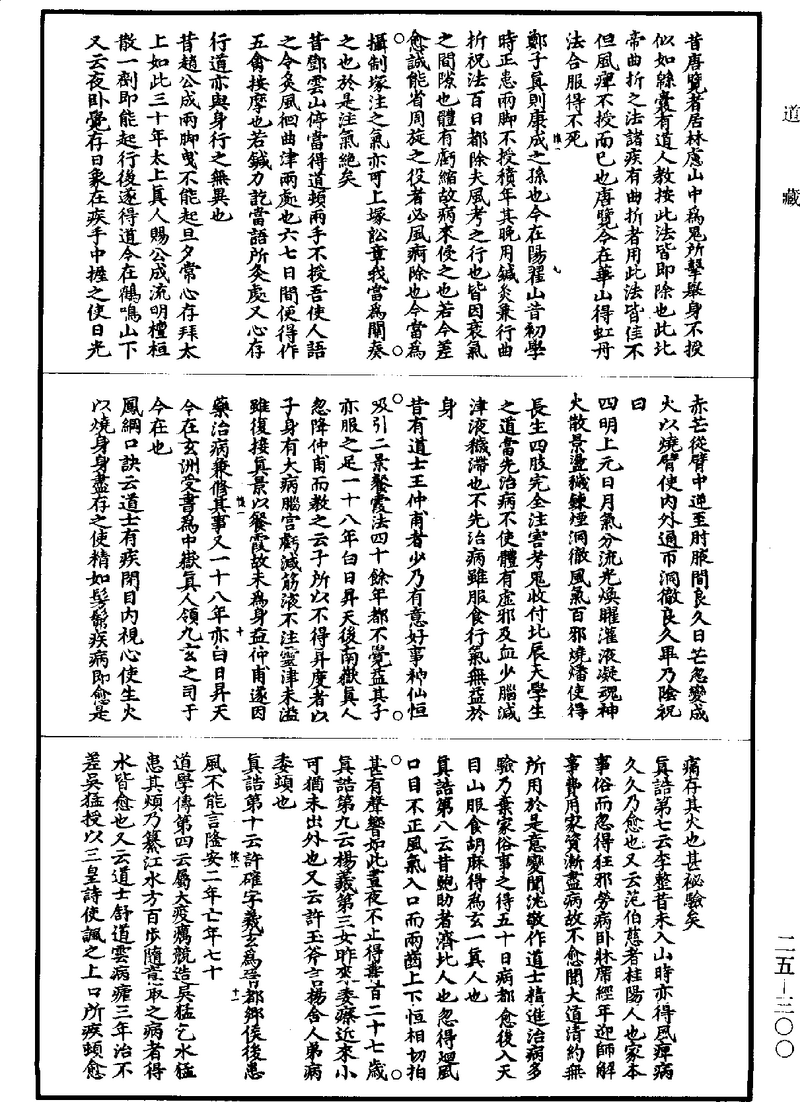 道藏
昔唐覽者居林慮山中爲鬼所擊舉身不授
似如綿囊有道人教按此法皆即除也此北
帝曲折之法諸疾有曲折者用此法皆佳不
但風痺不授而已也唐覽今在華山得虹丹
法合服得不死
鄭子真則康成之孫也今在陽翟山昔初學
時正患兩脚不授積年其晚用鍼灸兼行曲
折祝法百日都除夫風考之行也皆因衰氣
之間隙也體有虧縮故病來侵之也若今差
愈誠能省周旋之役者必風痾除也今當爲
攝制塚注之氣亦可上塚訟章我當爲關奏
之也於是注氣絕矣
昔鄧雲山停當得道頓兩手不授吾使人語
之令灸風徊曲津兩處也六七日間便得作
五禽按摩也若鍼力訖當語所灸處又心存
行道亦與身行之無異也
昔趙公成兩脚曳不能起旦夕常心存拜太
上如此三十年太上真人賜公成流明檀桓
散一劑即能起行後遂得道今在鶴鳴山下
又云夜卧覺存日象在疾手中握之使日光
赤芒從臂中逆至肘腋間良久日芒忽變成
火以燒臂使內外通帀洞徹良久畢乃陰祝
曰
四明上元日月氣分流光煥曜灌液凝魂神
火散景盪穢鍊煙洞徹風氣百邪燒燔使得
長生四肢完全注害考鬼收付北辰夫學生
之道當先治病不使體有虛邪及血少腦減
津液穢滯也不先治病雖服食行氣無益於
身
昔有道士王仲甫者少乃有意好事神仙恒
吸引二景飱霞法四十餘年都不覺益其子
亦服之足一十八年白日昇天後南嶽真人
忽降仲甫而教之云子所以不得昇度者以
子身有大病腦宮虧減筋液不注靈津未溢
雖復接真景以飱霞故未爲身益仲甫遂因
藥治病兼修其事又一十八年亦白日昇天
今在玄洲受書爲中嶽真人領九玄之司于
今在也
鳳綱口訣云道士有疾閉目內視心使生火
以燒身身盡存之使精如髣髴疾病即愈是
痛存其火也甚祕驗矣
真誥第七云李整昔未入山時亦得風痺病
久久乃愈也又云范伯慈者桂陽人也家本
事俗而忽得狂邪勞病卧牀席經年迎師解
事費用家資漸盡病故不愈聞大道清約無
所用於是意變聞沈敬作道士精進治病多
驗乃棄家俗事之得五十日病都愈後入天
目山服食胡麻得爲玄一真人也
真誥第八云昔鮑助者濟北人也忽得迴風
口目不正風氣入口而兩齒上下恒相切拍
甚有聲響如此晝夜不止得壽百二十七歲
真誥第九云楊羲第三女昨來委療近來小
可猶未出外也又云許玉斧言楊舍人弟病
委頓也
真誥第十云許確字羲玄爲晉都鄉侯後患
風不能言隆安二年亡年七十
道學傳第四云屬大疫癘競造吳猛乞水猛
患其煩乃纂江水方百步隨意取之病者得
水皆愈也又云道士舒道雲病瘧三年治不
差吳猛授以三皇詩使諷之上口所疾頓愈
二五－三〇〇